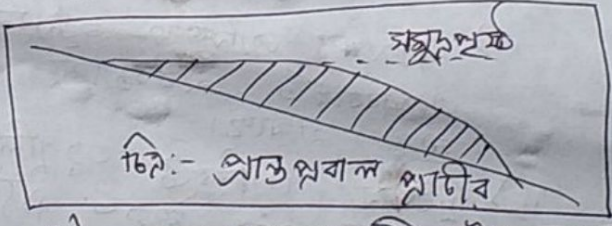 সমুদ্রপৃষ্ঠ
চিত্র:- প্রান্ত প্রবাল প্রাচীর